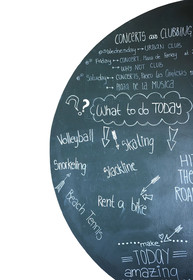 CONCERTS and CLUBBING
Wednesday → URBAN CLUB
Friday → CONCERT,
WHY NOT CLUB
Saturday → CONCERTS,
PLAZA DE LA MUSICA
?? What to do TODAY
Volleyball
Skating
Snorkeling
Slackline
HIT
THE
ROA
Beach Tennis
Rent a bike
make
TODAY
amazing